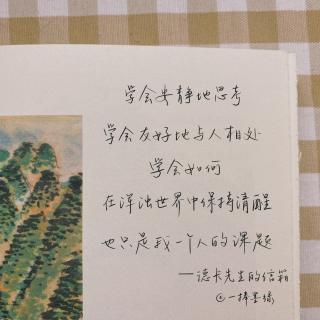 学会安静地思考
学会友好地与人相处
学会如何
在浑浊世界中保持清醒
也只是我一个人的课题
—德卡先生的信箱
@一捧墨绿